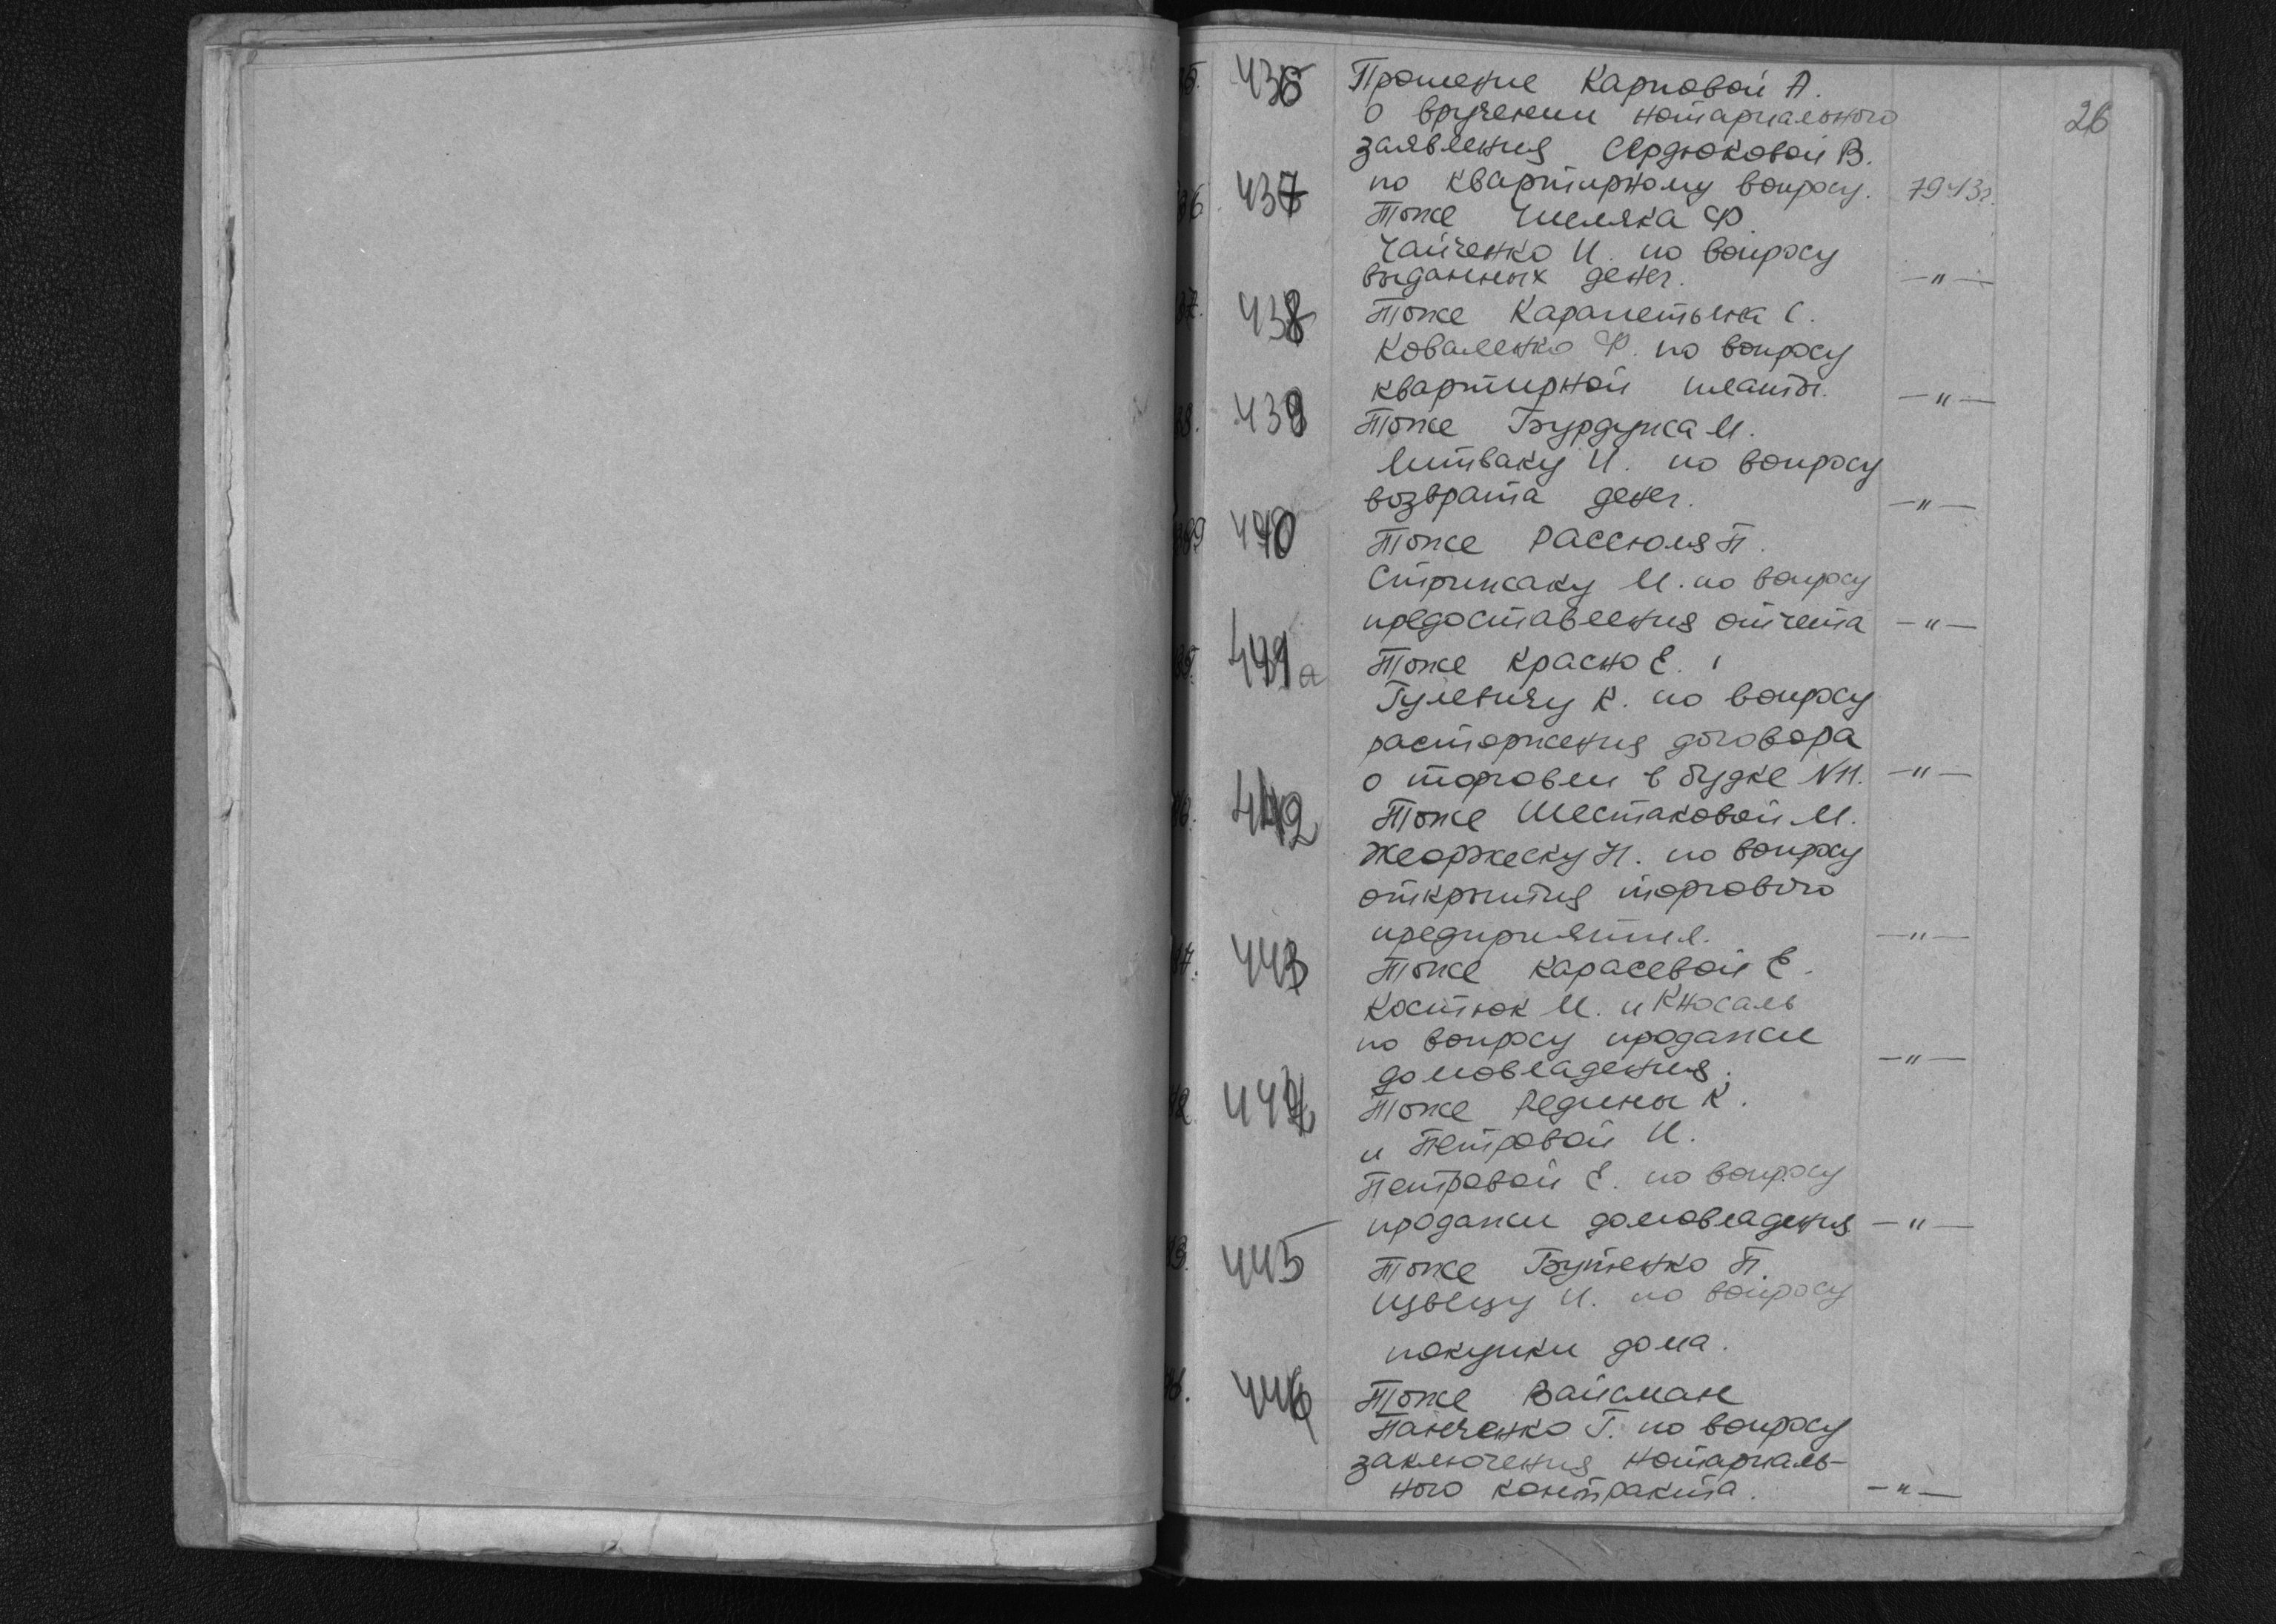 26
436 Прошение Карповой А.
о вручении нотариального
заявления Сердюковой В.
по квартирному вопросу. 7943г.
437 Тоже Шемяка Ф.
Чайченко И. по вопросу
выданных денег. —"—
438 Тоже Карапетьяна С.
Коваленко Ф. по вопросу
квартирной платы. —"—
439 Тоже Бурдужа М.
Литваку И. по вопросу
возврата денег. —"—
440 Тоже Рассюля П.
Стрижаку М. по вопросу
предоставления отчета —"—
441а Тоже Красно Е.
Гулевичу К. по вопросу
расторжения договора
о торговли в будке N11. —"—
442 Тоже Шестаковой М.
Жеоржеску Н. по вопросу
открытия торгового
предприятия. —"—
443 Тоже Карасевой Е.
Костюк М. и Кносаль
по вопросу продажи
домовладения. —"—
444 Тоже Редины К.
и Петровой И.
Петровой Е. по вопросу
продажи домовладения —"—
445 Тоже Бутенко П.
И. по вопросу
покупки дома.
446 Тоже Вайсман
Панченко Г. по вопросу
заключения нотариаль-
ного контракта. —"—